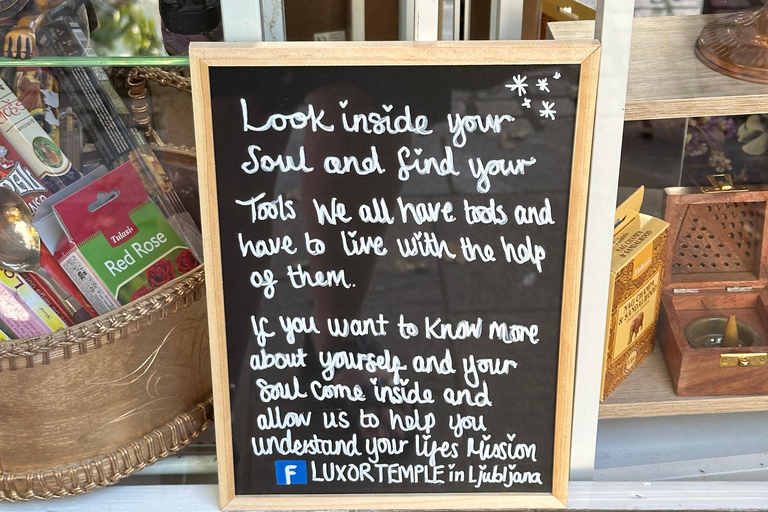 Look inside your
Soul and find your
Tools We all have tools and
have to live with the help
of them.
If you want to know more
about yourself and your
Soul come inside and
allow us to help you
understand your lifes Mission
F LUXOR TEMPLE in Ljubljana
Tulasi
Red Rose
NAG CHAMPA
& SANDALWOOD